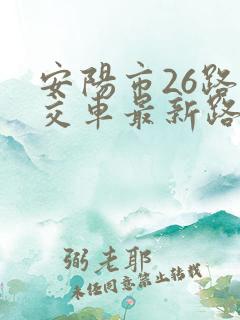 安陽市26路
交車最新路
弼老耶
未任同意禁止转载